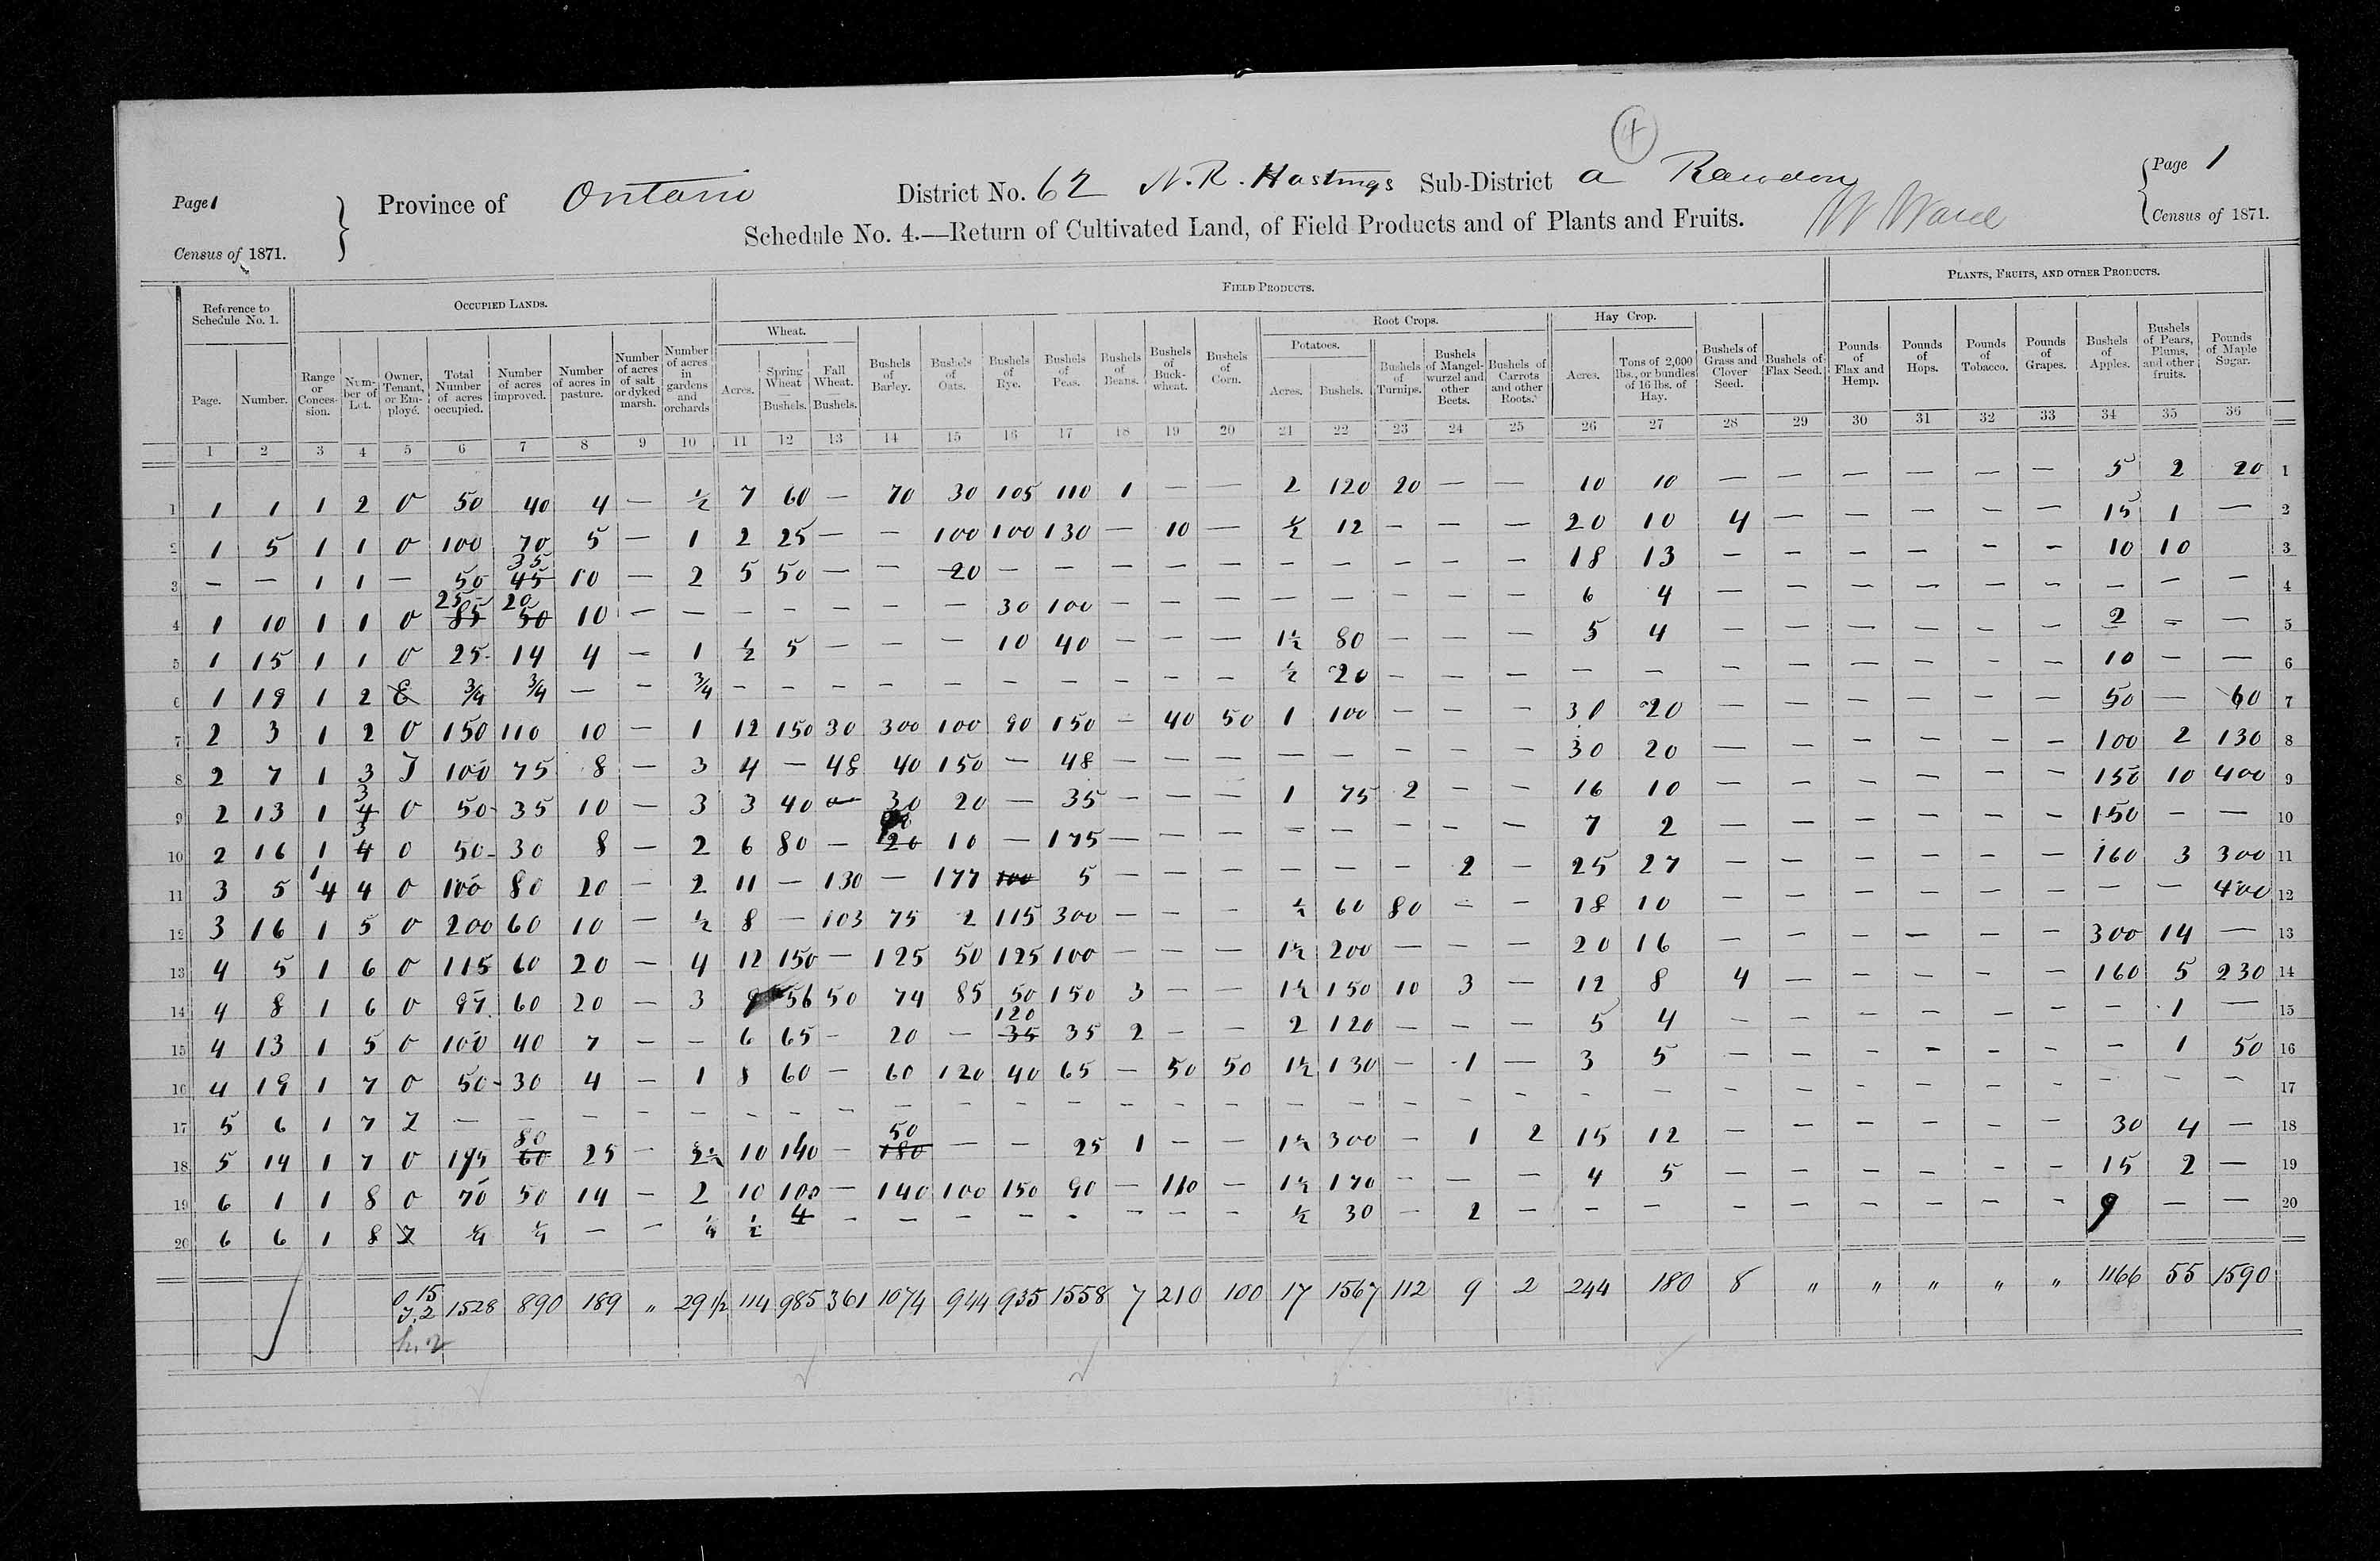 4
Page 1
Census of 1871.
Province of Ontario District No. 62 N. R. Hastings Sub-District a Rawdon
Schedule No. 4.—Return of Cultivated Land, of Field Products and of Plants and Fruits.
Page 1
Census of 1871.
Reference to Schedule No. 1. OCCUPIED LANDS. FIELD PRODUCTS. PLANTS, FRUITS, AND OTHER PRODUCTS.
Wheat. Root Crops. Potatoes. Hay Crop.
Page. Number. Range or Concession. Number of Lot. Owner, Tenant, or Employé. Total Number of acres occupied. Number of acres improved. Number of acres in pasture. Number of acres of salt or dyked marsh. Number of acres in gardens and orchards Acres. Spring Wheat — Bushels. Fall Wheat. — Bushels. Bushels of Barley. Bushels of Oats. Bushels of Rye. Bushels of Peas. Bushels of Beans. Bushels of Buckwheat. Bushels of Corn. Acres. Bushels. Bushels of Turnips. Bushels of Mangel-wurzel and other Beets. Bushels of Carrots and other Roots. Acres. Tons of 2,000 lbs., or bundles of 16 lbs. of Hay. Bushels of Grass and Clover Seed. Bushels of Flax Seed. Pounds of Flax and Hemp. Pounds of Hops. Pounds of Tobacco. Pounds of Grapes. Bushels of Apples. Bushels of Pears, Plums, and other fruits. Pounds of Maple Sugar.
1 2 3 4 5 6 7 8 9 10 11 12 13 14 15 16 17 18 19 20 21 22 23 24 25 26 27 28 29 30 31 32 33 34 35 36
1 1 1 1 2 O 50 40 4 — ½ 7 60 — 70 30 105 110 1 — — 2 120 20 — — 10 10 — — — — — — 5 2 20 1
2 1 5 1 1 O 100 70 5 — 1 2 25 — — 100 100 130 — 10 — ½ 12 — — — 20 10 4 — — — — — 15 1 — 2
3 — — 1 1 — 50 35 45 10 — 2 5 50 — — 20 — — — — — — — — — — 18 13 — — — — — — 10 10 3
4 1 10 1 1 O 25 85 20 50 10 — — — — — — — 30 100 — — — — — — — — 6 4 — — — — — — — — — 4
5 1 15 1 1 O 25 14 4 — 1 ½ 5 — — — 10 40 — — — 1½ 80 — — — 5 4 — — — — — — 2 — — 5
6 1 19 1 2 ¾ ¾ — — ¾ — — — — — — — — — — ½ 20 — — — — — — — — — — — 10 — — 6
7 2 3 1 2 O 150 110 10 — 1 12 150 30 300 100 90 150 — 40 50 1 100 — — — 30 20 — — — — — — 50 — 60 7
8 2 7 1 3 T 100 75 8 — 3 4 — 48 40 150 — 48 — — — — — — — — 30 20 — — — — — — 100 2 130 8
9 2 13 1 3 4 O 50 35 10 — 3 3 40 — 30 20 — 35 — — — 1 75 2 — — 16 10 — — — — — — 150 10 400 9
10 2 16 1 3 4 O 50 30 8 — 2 6 80 — 20 10 — 175 — — — — — — — — 7 2 — — — — — — 150 — — 10
11 3 5 1 4 4 O 100 80 20 — 2 11 — 130 — 177 100 5 — — — — — — 2 — 25 27 — — — — — — 160 3 300 11
12 3 16 1 5 O 200 60 10 — ½ 8 — 103 75 2 115 300 — — — ½ 60 80 — — 18 10 — — — — — — — — 400 12
13 4 5 1 6 O 115 60 20 — 4 12 150 — 125 50 125 100 — — — 1½ 200 — — — 20 16 — — — — — — 300 14 — 13
14 4 8 1 6 O 97 60 20 — 3 9 56 50 74 85 50 150 3 — — 1½ 150 10 3 — 12 8 4 — — — — — 160 5 230 14
15 4 13 1 5 O 100 40 7 — — 6 65 — 20 — 120 35 35 2 — — 2 120 — — — 5 4 — — — — — — — 1 — 15
16 4 19 1 7 O 50 30 4 — 1 8 60 — 60 120 40 65 — 50 50 1½ 130 — 1 — 3 5 — — — — — — — 1 50 16
17 5 6 1 7 — — — — — — — — — — — — — — — — — — — — — — — — — — — — — — — 17
18 5 14 1 7 O 175 80 60 25 — 2½ 10 140 — 50 180 — — 25 1 — — 1½ 300 — 1 2 15 12 — — — — — — 30 4 — 18
19 6 1 1 8 O 70 50 14 — 2 10 100 — 140 100 150 90 — 110 — 1½ 170 — — — 4 5 — — — — — — 15 2 — 19
20 6 6 1 8 ¼ ¼ — — ¼ ½ 4 — — — — — — — — ½ 30 — 2 — — — — — — — — — 9 — — 20
O 15 T. 2 1528 890 189 " 29 1/2 114 985 361 1074 944 935 1558 7 210 100 17 1567 112 9 2 244 180 8 " " " " " 1166 55 1590